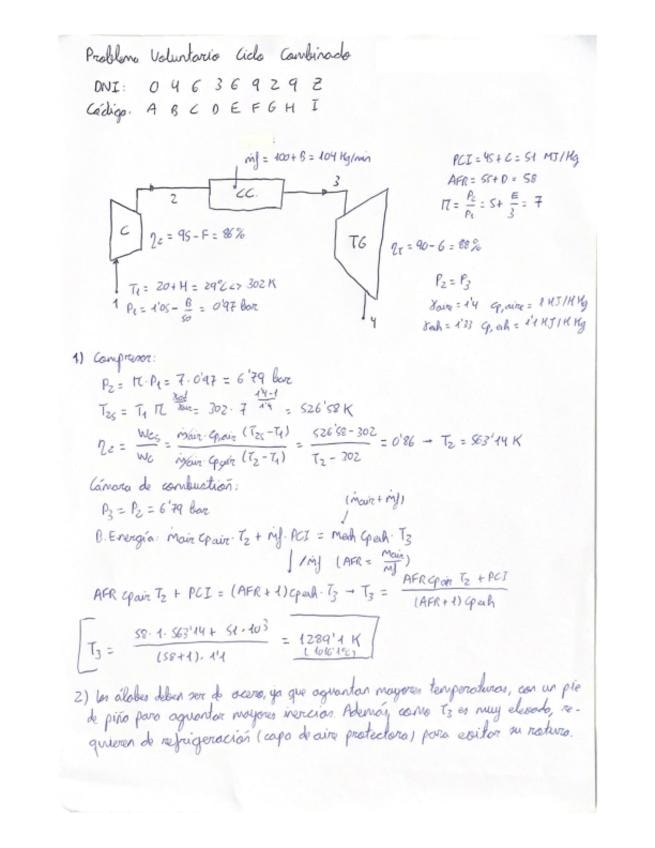 Problema Voluntario Ciclo Combinado
DNI: 0 4 6 3 6 9 2 9 Z
Código. A B C D E F G H I
ṁf = 100+B = 104 Kg/min
PCI = 45+C = 51 MJ/Kg
AFR = 55+D = 58
π = P2/P1 = 5+E/3 = 7
2
CC.
3
C
ηc = 95-F = 86%
TG
ηt = 90-G = 88%
T1 = 20+H = 29ºC <> 302 K
1
P1 = 1'05 - B/50 = 0'97 bar
P2 = P3
γaire = 1'4 cp,aire = 1 KJ/K Kg
γah = 1'33 cp,ah = 1'1 KJ/K Kg
4
1) Compresor:
P2 = π · P1 = 7 · 0'97 = 6'79 bar
T2s = T1 π = 302 · 7^((1'4-1)/1'4) = 526'58 K
ηc = Wcs/Wc = ṁair · cpair (T2s-T1) / ṁair cpair (T2-T1) = (526'58-302)/(T2-302) = 0'86 → T2 = 563'14 K
Cámara de combustión:
P3 = P2 = 6'79 bar
(ṁair + ṁf)
B. Energía: ṁair cpair · T2 + ṁf · PCI = ṁeah cpeah · T3
/ṁf (AFR = ṁair/ṁf)
AFR cpair T2 + PCI = (AFR+1) cpeah · T3 → T3 = (AFR cpair T2 + PCI)/((AFR+1) cpeah)
T3 = (58 · 1 · 563'14 + 51 · 10³)/((58+1) · 1'1) = 1289'1 K
(1016'1ºC)
2) Los álabes deben ser de acero, ya que aguantan mayores temperaturas, con un pie
de piño para aguantar mayores inercias. Además, como T3 es muy elevado, re-
quieren de refrigeración (capa de aire protectora) para evitar su rotura.